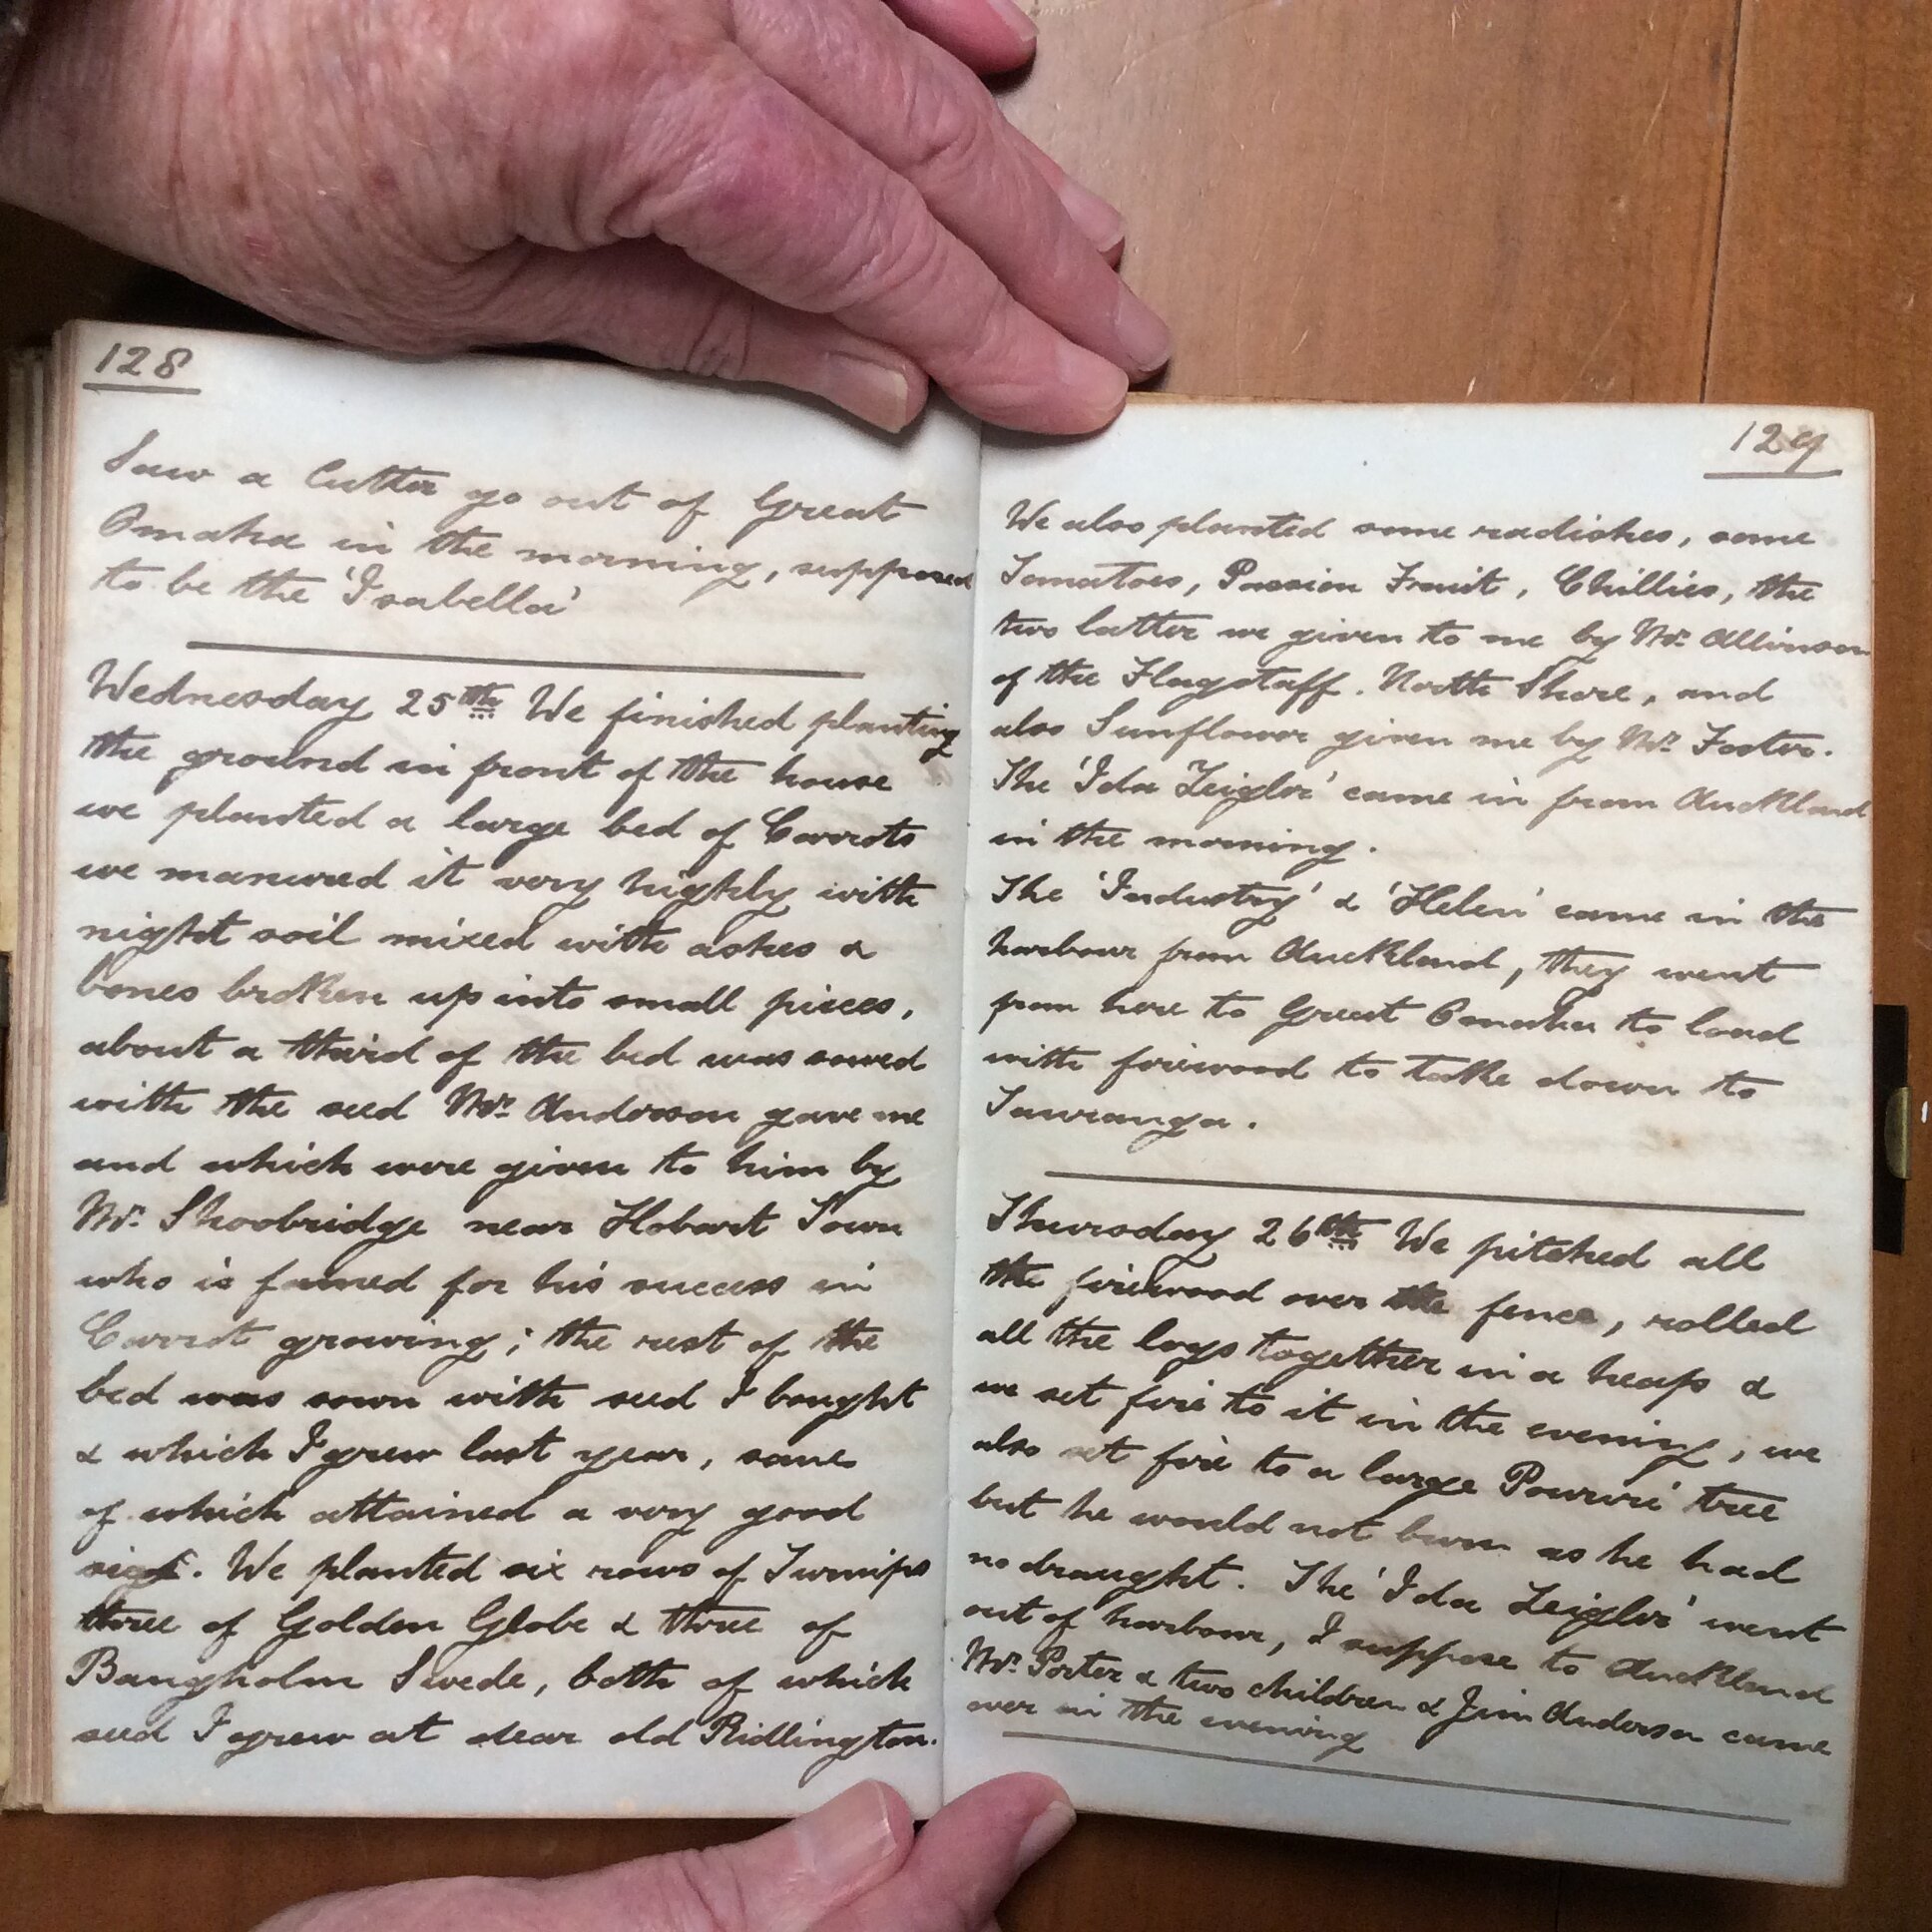 128
Saw a Cutter go out of Great
Omaha in the morning, supposed
to be the 'Isabella'
Wednesday 25th We finished planting
the ground in front of the house
we planted a large bed of Carrots
we manured it very highly with
night soil mixed with ashes &
bones broken up into small pieces,
about a third of the bed was sowed
with the seed Mr. Anderson gave me
and which were given to him by
Mr. Shoobridge near Hobart Town
who is famed for his success in
Carrot growing; the rest of the
bed was sown with seed I bought
& which I grew last year, some
of which attained a very good
size. We planted six rows of Turnips
three of Golden Globe & three of
Bangholm Swede, both of which
seed I grew at dear old Ridlington.
129
We also planted some radishes, some
Tomatoes, Passion Fruit, Chillies, the
two latter we given to me by Mr. Allinson
of the Flagstaff. North Shore, and
also Sunflower given me by Mr. Foster.
The 'Ida Zeigler' came in from Auckland
in the morning.
The 'Industry' & 'Helen' came in the
harbour from Auckland, they went
from here to Great Omaha to load
with firewood to take down to
Tauranga.
Thursday 26th We pitched all
the firewood over the fence, rolled
all the logs together in a heap &
we set fire to it in the evening, we
also set fire to a large Powriri tree
but he would not burn as he had
no draught. The 'Ida Zeigler' went
out of harbour, I suppose to Auckland
Mr. Porter & two children & Jim Anderson came
over in the evening